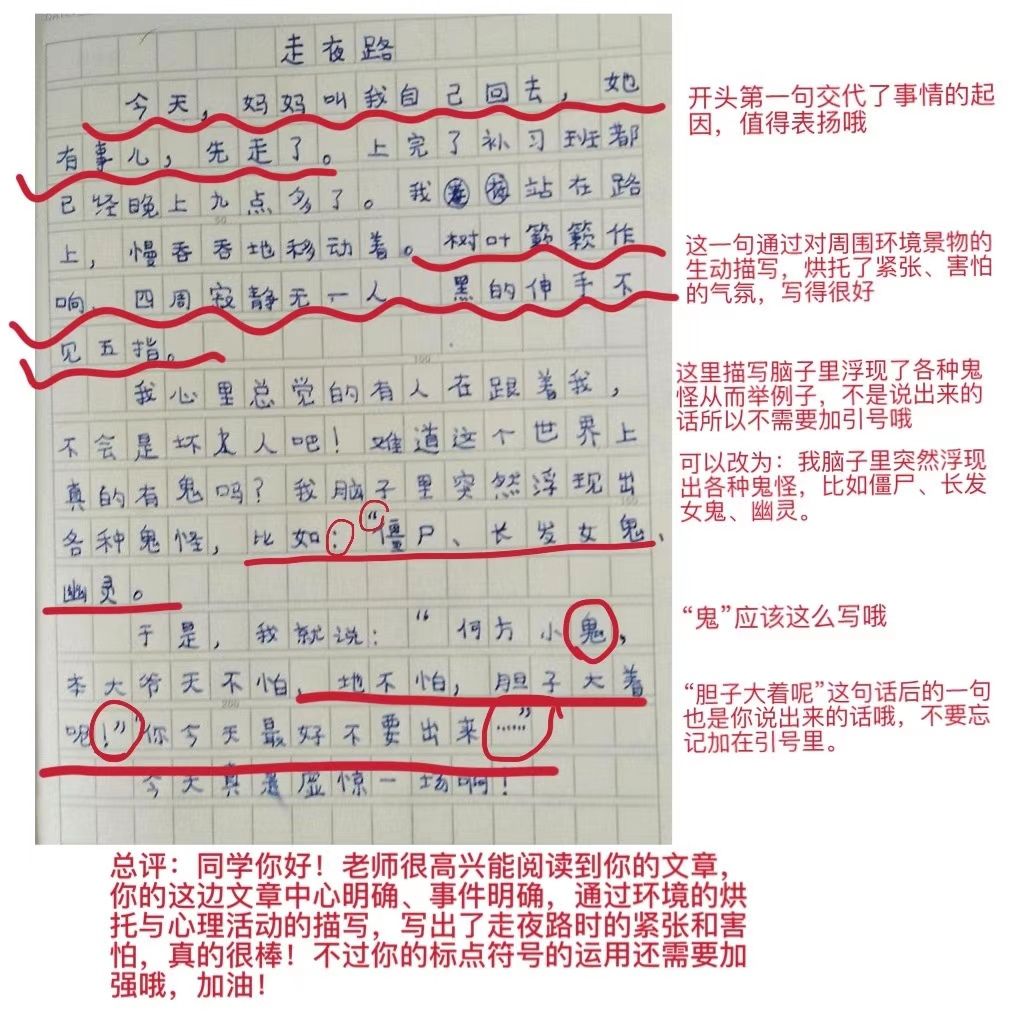 走夜路
今天，妈妈叫我自己回去，她
有事儿，先走了。上完了补习班都
已经晚上九点多了。我站在路
上，慢吞吞地移动着。树叶簌簌作
响，四周寂静无一人 黑的伸手不
见五指。
我心里总觉的有人在跟着我，
不会是坏人吧！难道这个世界上
真的有鬼吗？我脑子里突然浮现出
各种鬼怪，比如：“僵尸、长发女鬼、
幽灵。
于是，我就说：“何方小鬼，
本大爷天不怕，地不怕，胆子大着
呢！”你今天最好不要出来……”
今天真是虚惊一场啊！
开头第一句交代了事情的起
因，值得表扬哦
这一句通过对周围环境景物的
生动描写，烘托了紧张、害怕
的气氛，写得很好
这里描写脑子里浮现了各种鬼
怪从而举例子，不是说出来的
话所以不需要加引号哦
可以改为：我脑子里突然浮现
出各种鬼怪，比如僵尸、长发
女鬼、幽灵。
“鬼”应该这么写哦
“胆子大着呢”这句话后的一句
也是你说出来的话哦，不要忘
记加在引号里。
总评：同学你好！老师很高兴能阅读到你的文章，
你的这边文章中心明确、事件明确，通过环境的烘
托与心理活动的描写，写出了走夜路时的紧张和害
怕，真的很棒！不过你的标点符号的运用还需要加
强哦，加油！